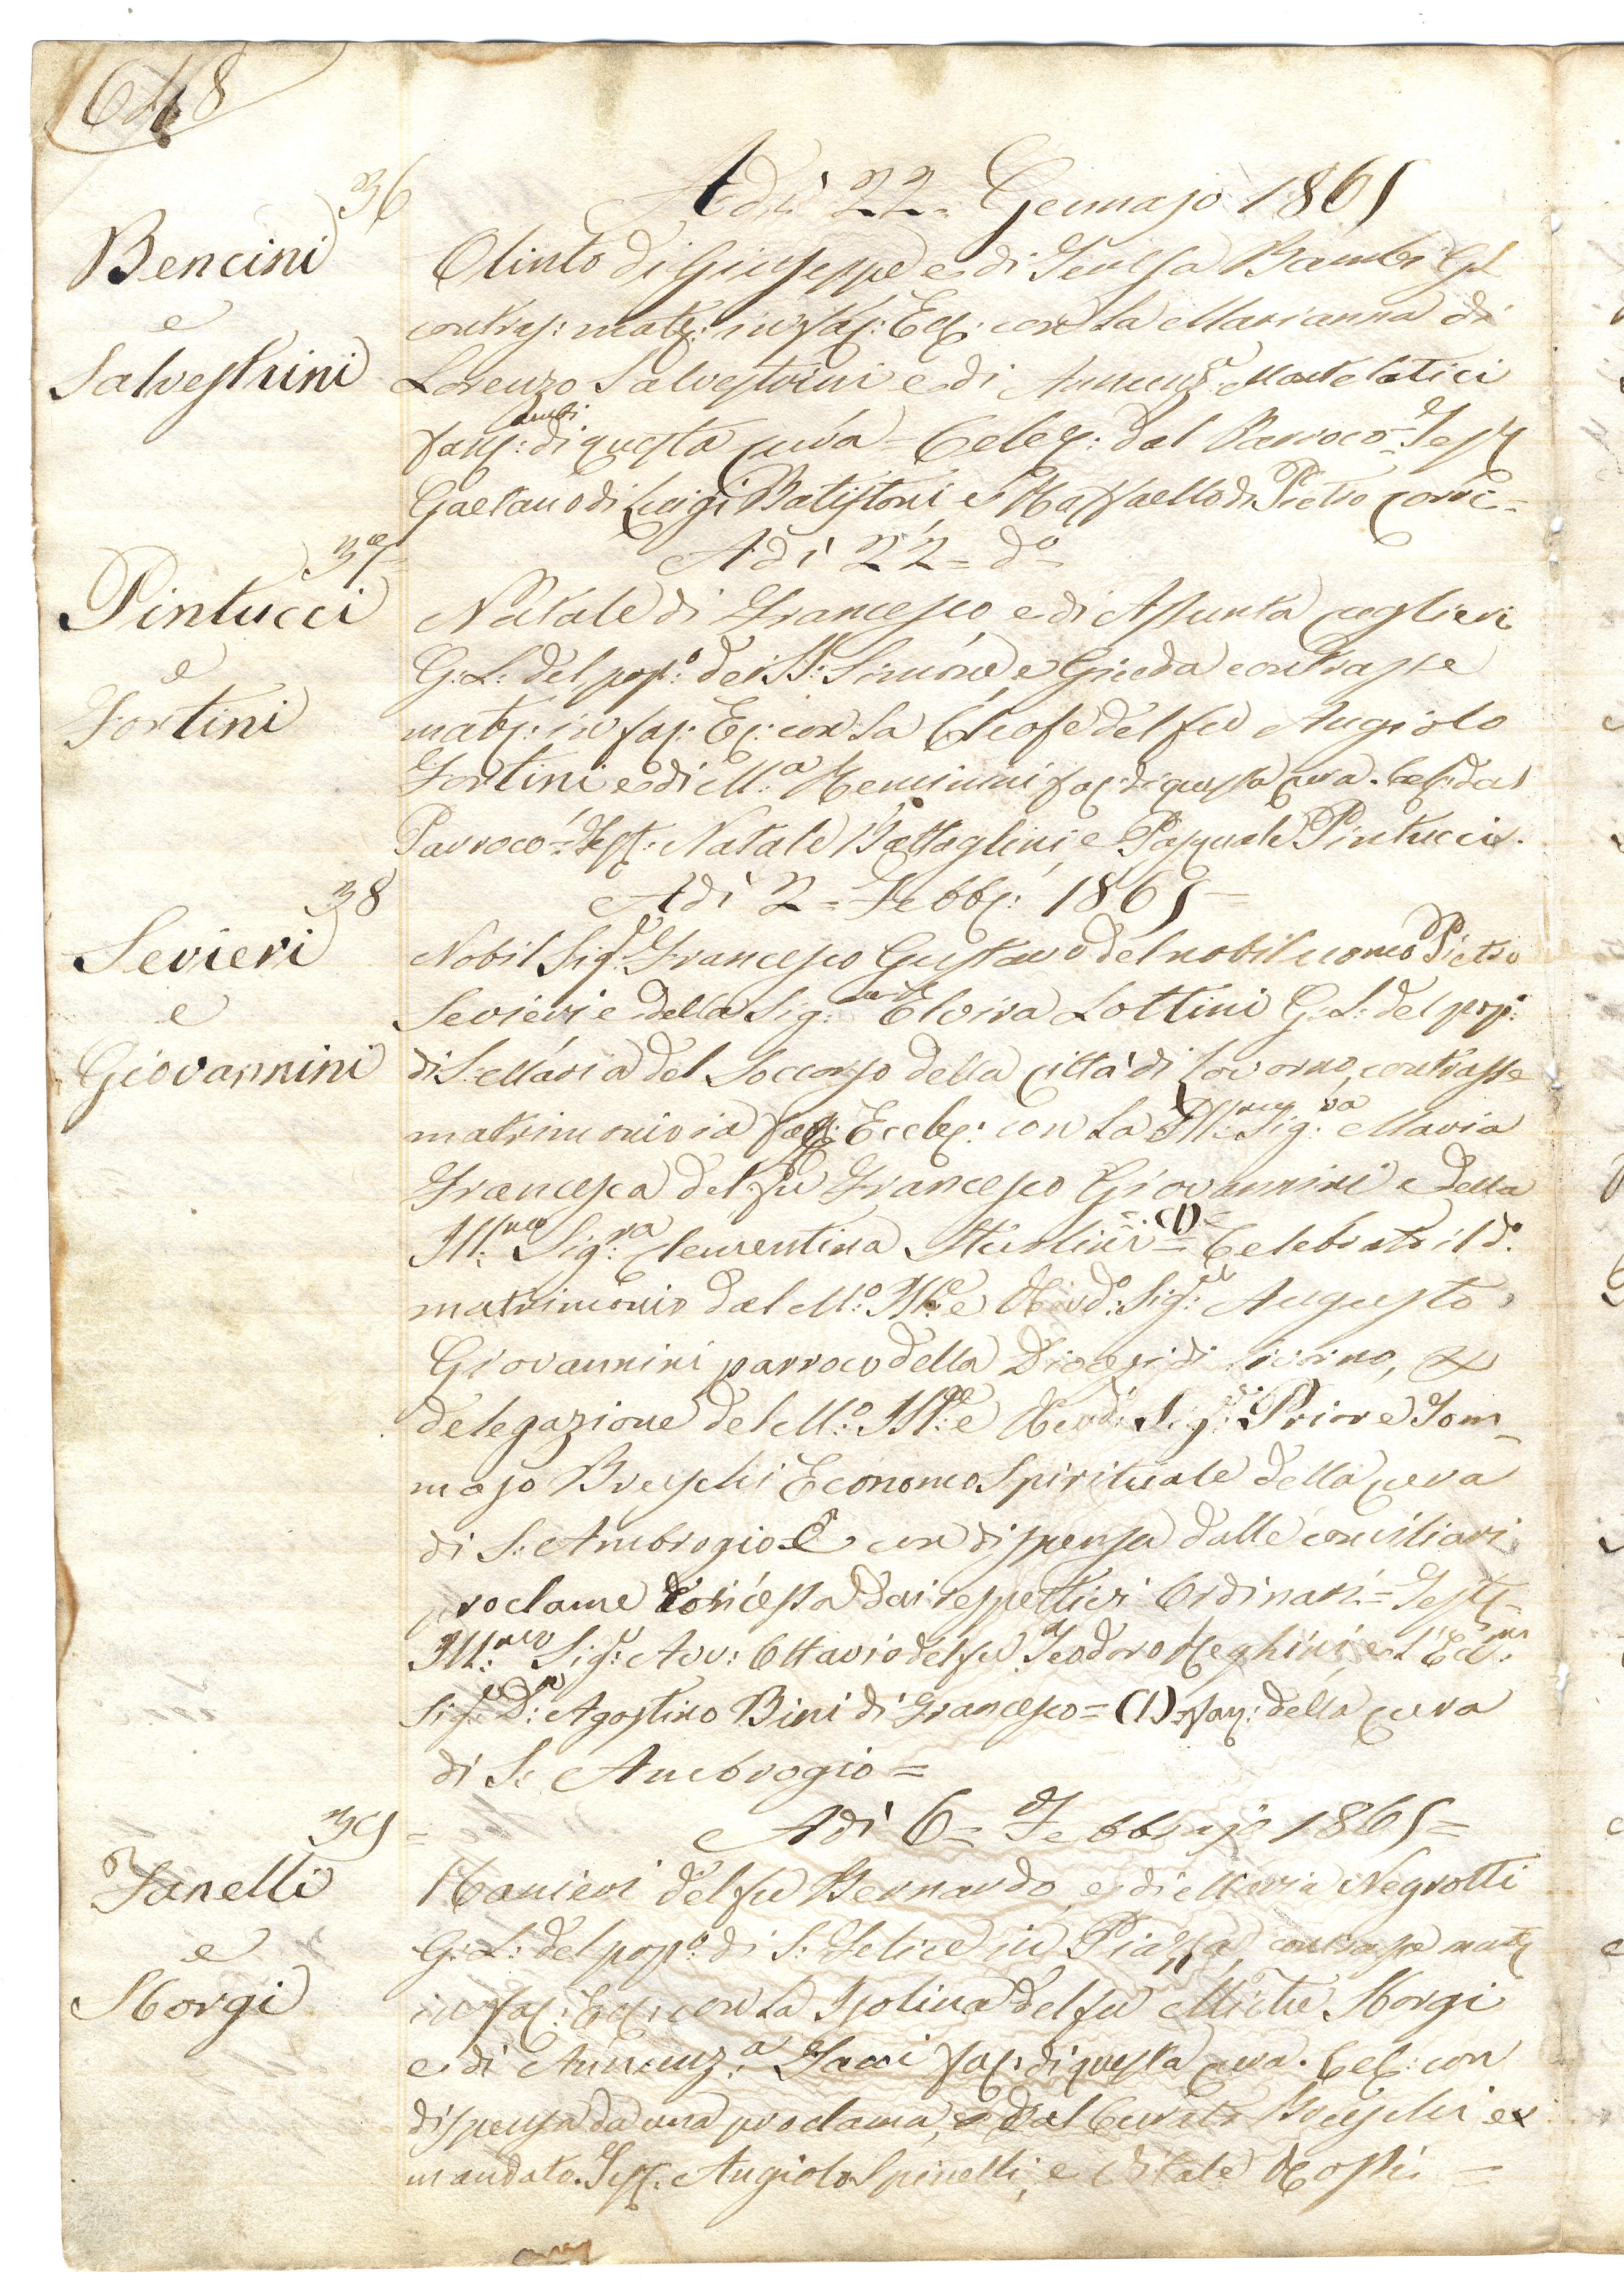 648
36
Adì 22 = Gennajo 1865
Bencini
e
Salvestrini
Olinto di Giuseppe e di Teresa Bambi G.L.
contras: mats: in fas: Ecs: con la Marianna di
Lorenzo Salvestrini e di Annunz.a Martelatici
ambi
fans: di questa cura = Celes: dal Parroco = Tess
Gaetano di Luigi Batistoni, e Raffaello di Pietro
37 =
Adì 22 = do
Pintucci
e
Fortini
Natale di Francesco e di Assunta Coglievi
G: L: del pop:o dei SS: Simone e Giuda contrasse
mats: in fas: Es: con la Cleofe del fu Angiolo
Fortini e di M:a Mencinini fas: di questa cura. Cels: dal
Parroco = Tess: Natale Battaglini e Pasquale Pintucci.
38
Adì 2 = Febbs: 1865 =
Sevieri
e
Giovannini
Nobil Sig:r Francesco Gustavo del nobil uomo Pietro
Sevieri e della Sig: Elvira Lottini G: L: del pop:o
di S: Maria del Soccorso della città di Livorno, contrasse
matrimonio in fas: Eccles: con la Ill:ma Sig:ra Maria
Francesca del fu Francesco Giovannini e della
Ill:ma Sig:ra Clementina = (1) = Celebrato il do:
matrimonio dal M:o Ill:e Revd:o Sig:r Augusto
Giovannini parroco della Diogesi di Livorno, ex
delegazione del M:o Ill:e Revd: Sig:r Priore Tom=
maso Breschi Economo Spirituale della cura
di S: Ambrogio E con dispensa dalle conciliari
proclame concessa dai respettivi Ordinari = Tess =
Ill:mo Sig:r Avv: Ottavio del fu Teodoro Meghini, e l'Ecc:mo
Sig:r D:r Agostino Bini di Francesco = (1) fan: della cura
di S: Ambrogio =
39 =
Adì 6 = Febbrajo 1865 =
Fanelli
e
Storgi
Ranieri del fu Bernardo, e di Maria Negrotti
G: L: del pop:o di S: Felice in Piazza, contrasse mats
in fas: Ecs: con la Isolina del fu Storgi
e di Annunz:a fas: di questa cura. Cel: con
dispensa da una proclama, e dal Curato Breschi ex
mandato. Tess: Angiolo Spinelli, e Vitale Rossi =